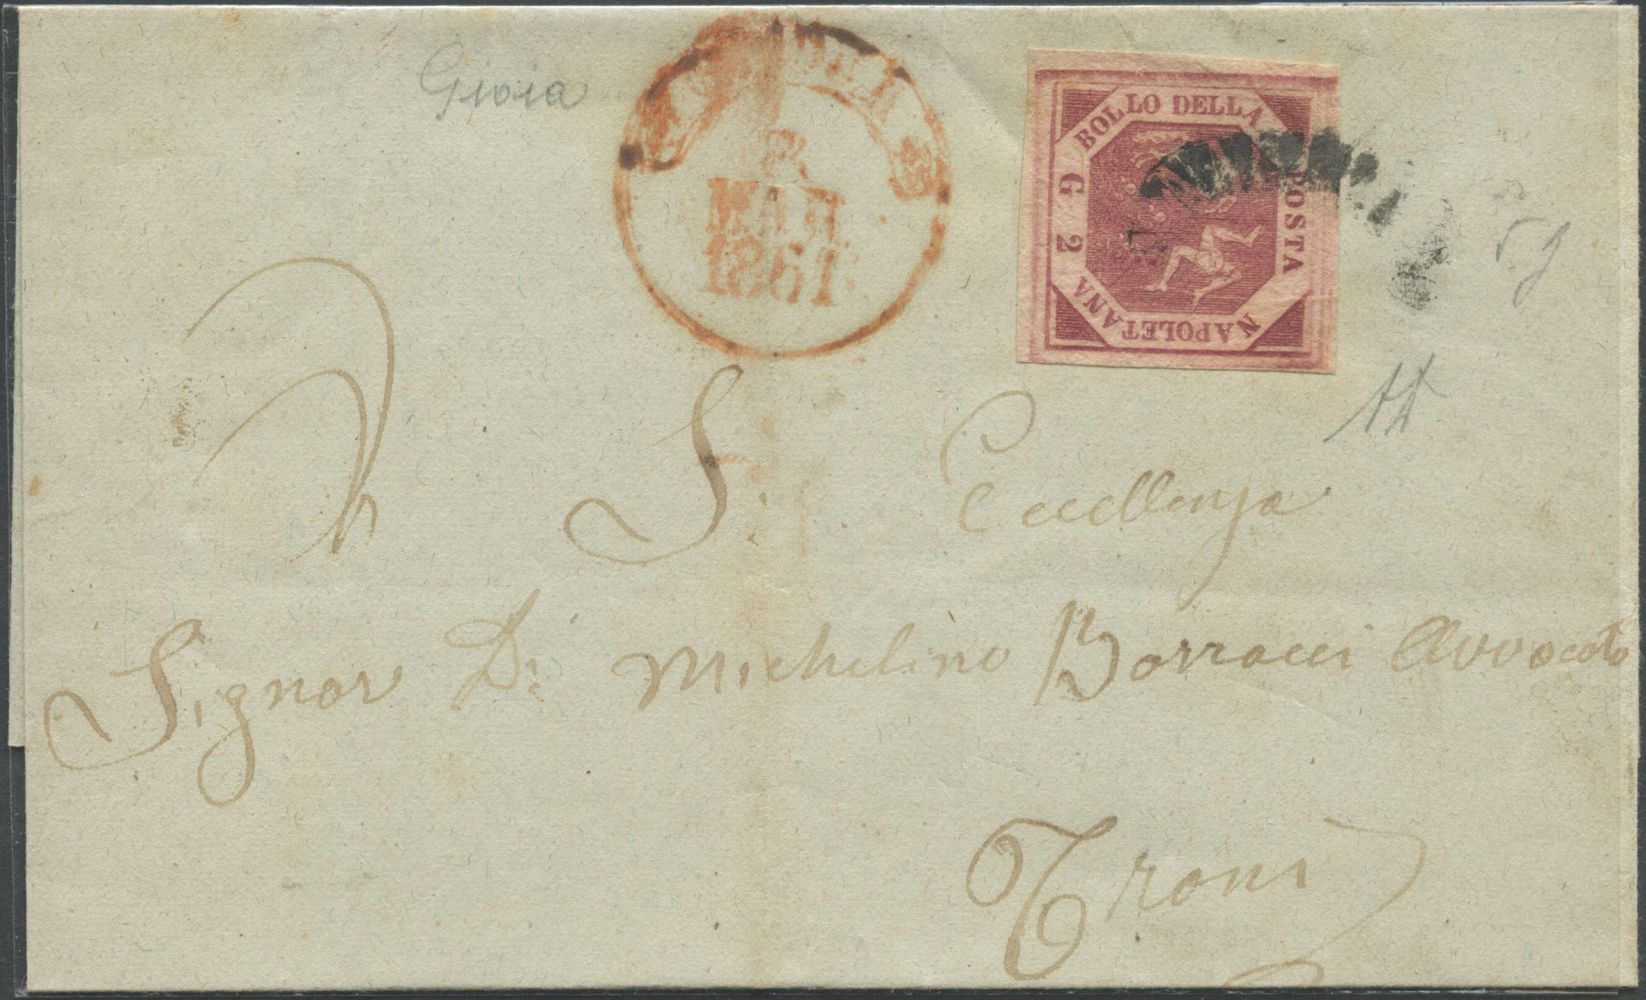 Gioia
8
MAR
1861
BOLLO DELLA
POSTA
NAPOLETANA
G 2
S. Eccellenza
Signor Dn Michelino Borracci Avvocato
Trani